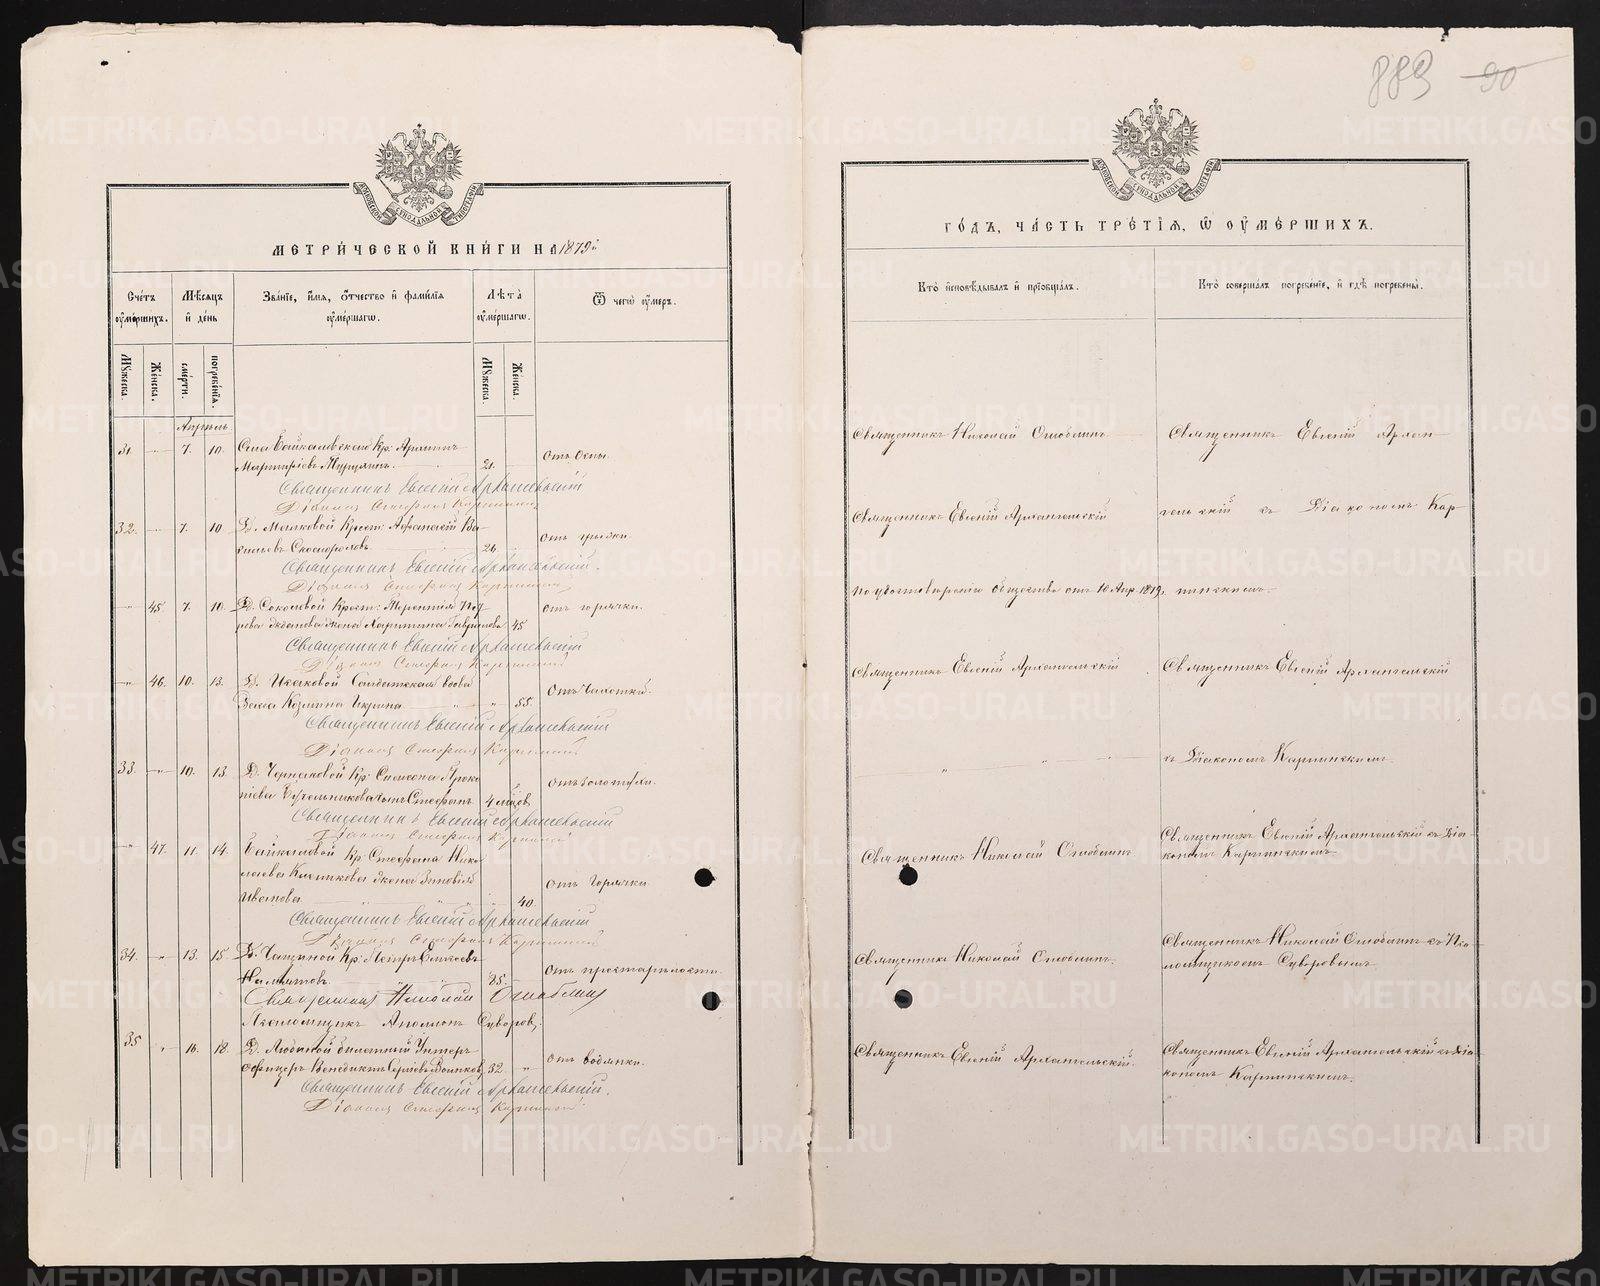 889 90
МЕТРИ́ЧЕСКОЙ КНИ́ГИ НА 1879 г.
Сче́тъ ᲂу҆ме́ршихъ.
Мѣ́сяцъ и҆ де́нь
Зва́нїе, и҆́мя, ѻ҆́тчество и҆ фами́лїя ᲂу҆ме́ршагѡ.
Лѣ́та ᲂу҆ме́ршагѡ.
Ѿ чегѡ̀ ᲂу҆́меръ.
Мꙋ́жеска.
Же́нска.
сме́рти.
погребе́нїѧ.
Мꙋ́жеска.
Же́нска.
Апрѣль
31. 7. 10. Села Байкаловскаго Кр:
Мартиріевъ 21. отъ Оспы.
Священникъ Евгеній Архангельскій
Діаконъ Стефанъ Карпинскій
32. 7. 10. Д. Крест: Афанасій Ва-
сильевъ Скомороховъ 26. отъ
Священникъ Евгеній Архангельскій.
Діаконъ Стефанъ Карпинскій
45 7. 10. Д. Соколовой Крест: Терентія
жена Харитина Гаврилова 45 отъ горячки.
Священникъ Евгеній Архангельскій
Діаконъ Стефанъ Карпинскій
46. 10. 13. Д. Исаковой Солдатская вдова
Козмина 55. отъ чахотки.
Священникъ Евгеній Архангельскій
Діаконъ Стефанъ Карпинскій
33. 10. 13. Д. Кр: Симеона Проко-
піева сынъ Стефанъ 4 отъ золотухи.
Священникъ Евгеній Архангельскій
Діаконъ Стефанъ Карпинскій
47. 11. 14. Байкаловой Кр. Стефана Нико-
лаева жена Зиновія
Иванова 40. отъ Горячки
Священникъ Евгеній Архангельскій
Діаконъ Стефанъ Карпинскій
34. 13. 15. Д. Чащиной Кр: Петръ
85. отъ престарѣлости.
Священникъ Николай Оглоблинъ
Псаломщикъ Аполлонъ Суворовъ.
35 16. 18. Д. Любиной билетный Унтеръ
офицеръ Венедиктъ 32. отъ водянки.
Священникъ Евгеній Архангельскій.
Діаконъ Стефанъ Карпинскій
ГО́ДЪ, ЧА́СТЬ ТРЕ́ТЇЯ, Ѡ҆ ОУ҆МЕ́РШИХЪ.
Кто̀ и҆сповѣ́дывалъ и҆ прїобща́лъ.
Кто̀ соверша́лъ погребе́нїе, и҆ гдѣ̀ погребены̀.
Священникъ Николай Оглоблинъ
Священникъ Евгеній Архан-
Священникъ Евгеній Архангельскій
гельскій съ Діакономъ Кар-
По удостовѣренію Общества отъ 10 Апр. 1879 г.
пинскимъ.
Священникъ Евгеній Архангельскій
Священникъ Евгеній Архангельскій
съ Діакономъ Карпинскимъ.
Священникъ Николай Оглоблинъ
Священникъ Евгеній Архангельскій съ Діа-
кономъ Карпинскимъ
Священникъ Николай Оглоблинъ.
Священникъ Николай Оглоблинъ съ Пса-
ломщикомъ Суворовымъ
Священникъ Евгеній Архангельскій.
Священникъ Евгеній Архангельскій съ Діа-
кономъ Карпинскимъ.
METRIKI.GASO-URAL.RU